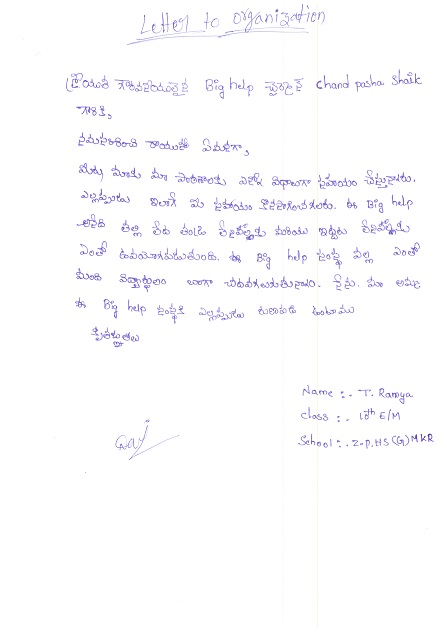 Letter to organization
శ్రీయుత గౌరవనీయులైన Big help ఛైర్మన్ Chand pasha Shaik
గారికి,
నమస్కరించి రాయునది ఏమనగా,
మీరు మాకు మా పాఠశాలకు ఎన్నో విధాలుగా సహాయం చేస్తున్నారు.
ఎల్లప్పుడు ఇలాగే మీ సహాయం కొనసాగించగలరు. ఈ Big help
అనేది తల్లి లేదా తండ్రి లేనివాళ్ళకు మరియు ఇద్దరు లేనివాళ్ళకు
ఎంతో ఉపయోగపడుతుంది. ఈ Big help సంస్థ వల్ల ఎంతో
మంది విద్యార్థులం బాగా చదవగలుగుతున్నాము. నేను, మా అమ్మ
ఈ Big help సంస్థకి ఎల్లప్పుడు రుణపడి ఉంటాము
కృతజ్ఞతలు
Name :- T. Ramya
Class :- 10th E/M
School :- Z.P.HS (G) MKR